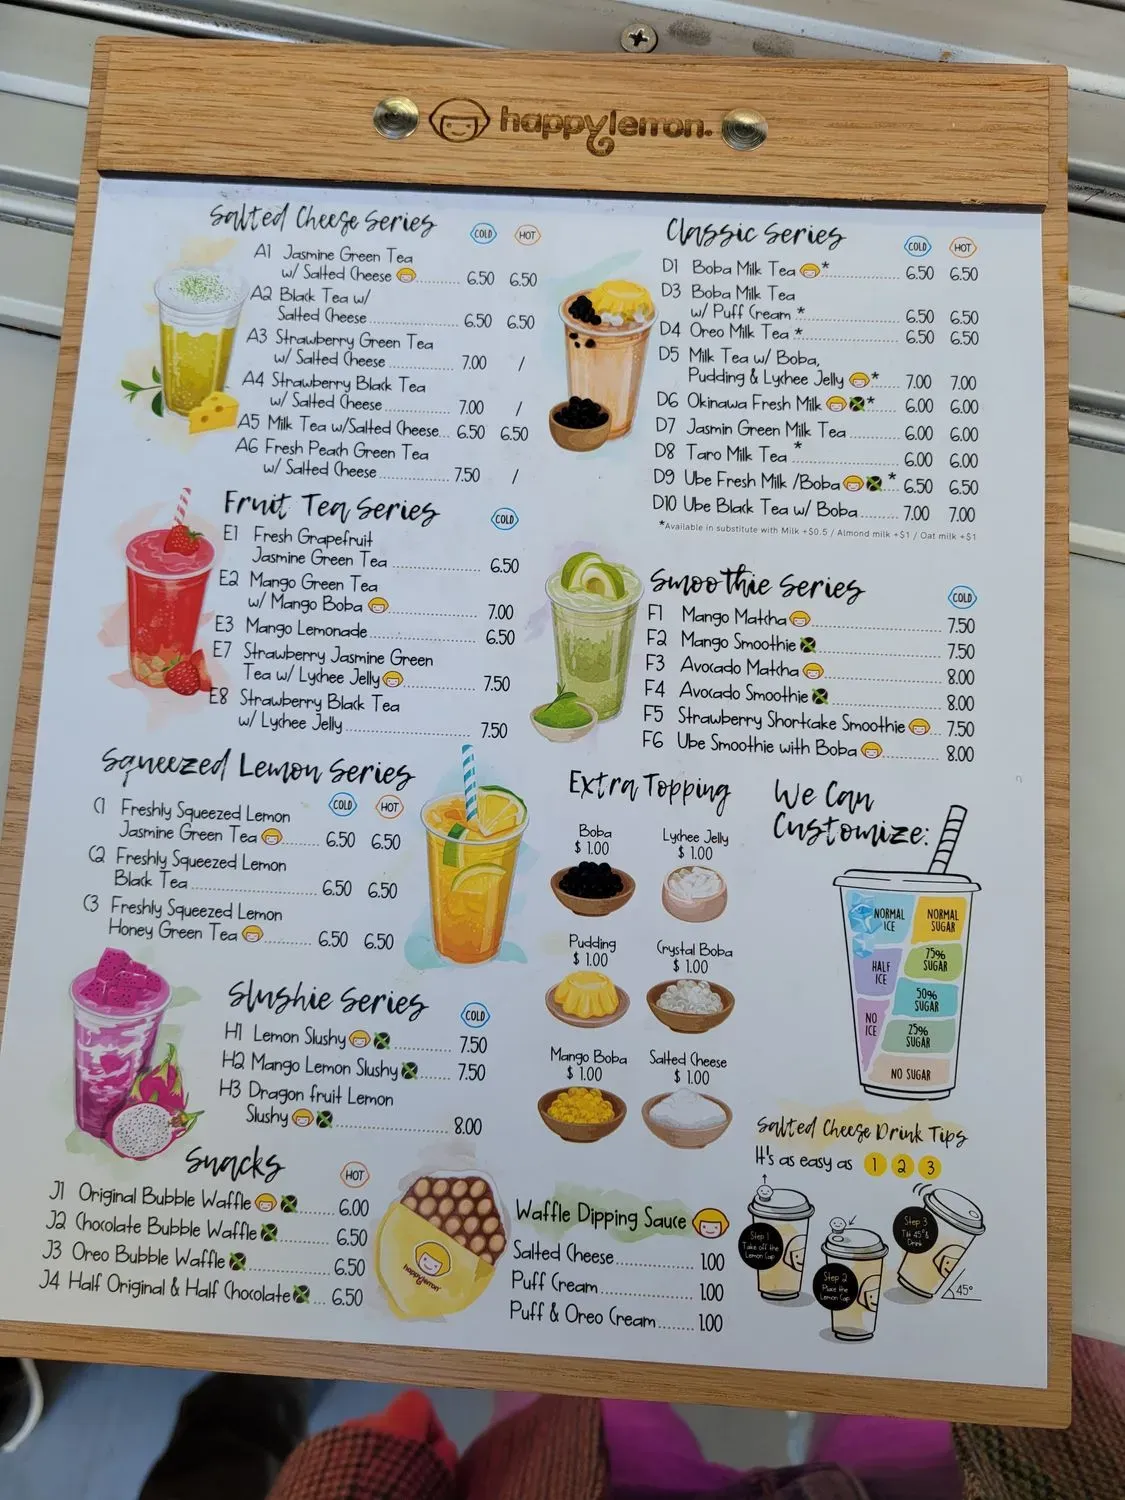 happylemon.
Salted Cheese Series
COLD HOT
A1 Jasmine Green Tea
w/ Salted Cheese 6.50 6.50
A2 Black Tea w/
Salted Cheese 6.50 6.50
A3 Strawberry Green Tea
w/ Salted Cheese 7.00 /
A4 Strawberry Black Tea
w/ Salted Cheese 7.00 /
A5 Milk Tea w/Salted Cheese... 6.50 6.50
A6 Fresh Peach Green Tea
w/ Salted Cheese 7.50 /
Fruit Tea Series
COLD
E1 Fresh Grapefruit
Jasmine Green Tea 6.50
E2 Mango Green Tea
w/ Mango Boba 7.00
E3 Mango Lemonade 6.50
E7 Strawberry Jasmine Green
Tea w/ Lychee Jelly 7.50
E8 Strawberry Black Tea
w/ Lychee Jelly 7.50
Squeezed Lemon Series
COLD HOT
C1 Freshly Squeezed Lemon
Jasmine Green Tea 6.50 6.50
C2 Freshly Squeezed Lemon
Black Tea 6.50 6.50
C3 Freshly Squeezed Lemon
Honey Green Tea 6.50 6.50
Slushie Series
COLD
H1 Lemon Slushy 7.50
H2 Mango Lemon Slushy 7.50
H3 Dragon fruit Lemon
Slushy 8.00
Snacks
HOT
J1 Original Bubble Waffle 6.00
J2 Chocolate Bubble Waffle 6.50
J3 Oreo Bubble Waffle 6.50
J4 Half Original & Half Chocolate 6.50
happylemon
Classic Series
COLD HOT
D1 Boba Milk Tea * 6.50 6.50
D3 Boba Milk Tea
w/ Puff Cream * 6.50 6.50
D4 Oreo Milk Tea * 6.50 6.50
D5 Milk Tea w/ Boba,
Pudding & Lychee Jelly * 7.00 7.00
D6 Okinawa Fresh Milk * 6.00 6.00
D7 Jasmin Green Milk Tea 6.00 6.00
D8 Taro Milk Tea * 6.00 6.00
D9 Ube Fresh Milk /Boba * 6.50 6.50
D10 Ube Black Tea w/ Boba 7.00 7.00
*Available in substitute with Milk +$0.5 / Almond milk +$1 / Oat milk +$1
Smoothie Series
COLD
F1 Mango Matcha 7.50
F2 Mango Smoothie 7.50
F3 Avocado Matcha 8.00
F4 Avocado Smoothie 8.00
F5 Strawberry Shortcake Smoothie 7.50
F6 Ube Smoothie with Boba 8.00
Extra Topping
Boba
$ 1.00
Lychee Jelly
$ 1.00
Pudding
$ 1.00
Crystal Boba
$ 1.00
Mango Boba
$ 1.00
Salted Cheese
$ 1.00
Waffle Dipping Sauce
Salted Cheese 1.00
Puff Cream 1.00
Puff & Oreo Cream 1.00
We Can
Customize:
NORMAL
ICE
HALF
ICE
NO
ICE
NORMAL
SUGAR
75%
SUGAR
50%
SUGAR
25%
SUGAR
NO SUGAR
Salted Cheese Drink Tips
It's as easy as 1 2 3
Step 1
Take off the
Lemon Cap
Step 2
Place the
Lemon Cap
Step 3
Tilt 45°&
Drink
45°